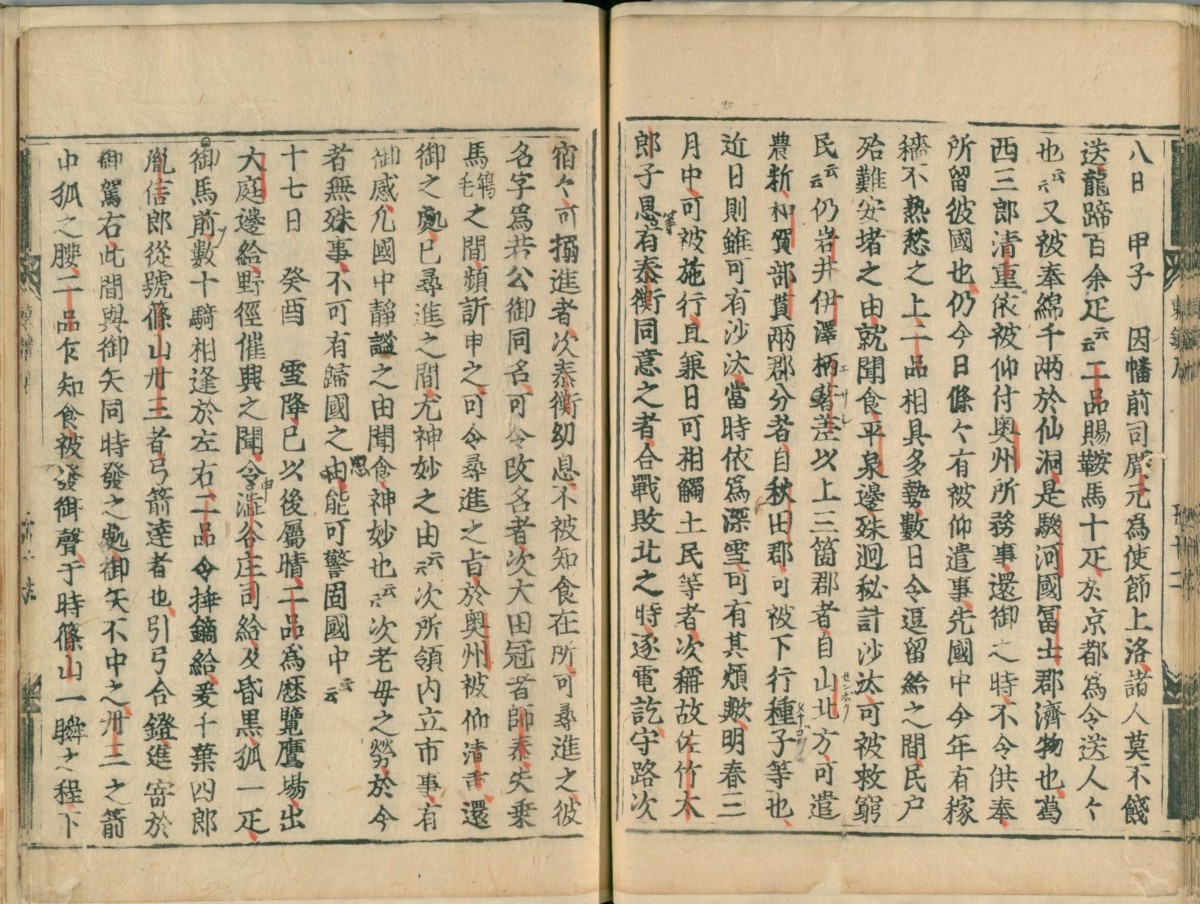 八日　甲子　因幡前司廣元為使節上洛諸人莫不餞
送龍蹄百余疋云云二品賜鞍馬十疋於京都為令送人々
也云云又被奉綿千兩於仙洞是駿河國冨士郡濟物也葛
西三郎清重依被仰付奥州所務事還御之時不令供奉
所留彼國也仍今日條々有被仰遣事先國中今年有稼
穡不熟愁之上二品相具多勢數日令逗留給之間民户
殆難安堵之由就聞食平泉邊殊迴秘計沙汰可被救窮
民云云仍岩井伊澤柄著差以上三箇郡者自山北方可遣
農新和賀部貫兩郡分者自秋田郡可被下行種子等也
近日則雖可有沙汰當時依爲深雪可有其煩歟明春三
月中可被施行且兼日可相觸土民等者次稱故佐竹太
郎子息等有泰衡同意之者合戰敗北之時逐電訖守路次
宿々可搦進者次泰衡幼息不被知食在所可尋進之彼
名字爲若公御同名可令改名者次大田冠者師泰失乗
馬鴾毛之間頻訴申之可令尋進之旨於奥州被仰渚書還
御之處已尋進之間尤神妙之由云云次所領内立市事有
御感允國中静謐之由聞食神妙也云云次老母之勞於今
者無殊事不可有歸國之由思能可警固國中云云
十七日　癸酉　雪降巳以後屬晴二品爲歴覽鷹場出
大庭邊給野徑催興之聞令申澁谷庄司給及昏黒狐一疋
御馬前數十騎相逢於左右二品令挿鏑給爰千葉四郎
胤信郎從號篠山丹三者弓箭達者也引弓合鐙進寄於
御駕右此間與御矢同時發之處御矢不中之丹三之箭
中狐之腰二品乍知食被發御聲于時篠山一瞬之程下